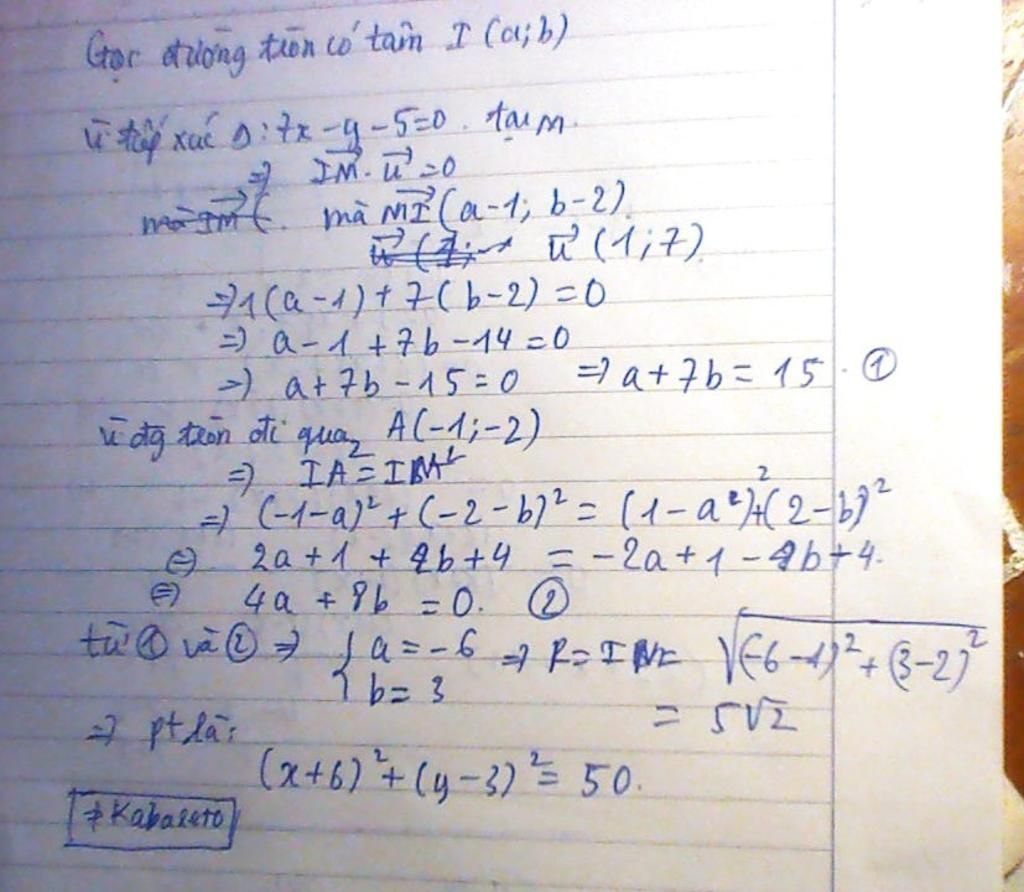 Gọi đường tròn có tâm I (a;b)
vì tiếp xúc Δ: 7x - y - 5 = 0. tại M.
=> IM→. u→ = 0
mà IM→ (. mà MI→ (a-1; b-2)
u→ (7; u→ (1;7)
=> 1(a-1) + 7(b-2) = 0
=> a - 1 + 7b - 14 = 0
=> a + 7b - 15 = 0 => a + 7b = 15. ①
vì đg tròn đi qua A(-1;-2)
=> IA² = IM²
=> (-1-a)² + (-2-b)² = (1-a²)² + (2-b)²
⇔ 2a + 1 + 4b + 4 = -2a + 1 - 4b + 4.
⇔ 4a + 8b = 0. ②
từ ① và ② => { a = -6 => R = IM = √(-6-1)² + (3-2)²
b = 3
= 5√2
=> pt là:
(x+6)² + (y-3)² = 50.
≠Kabaseto